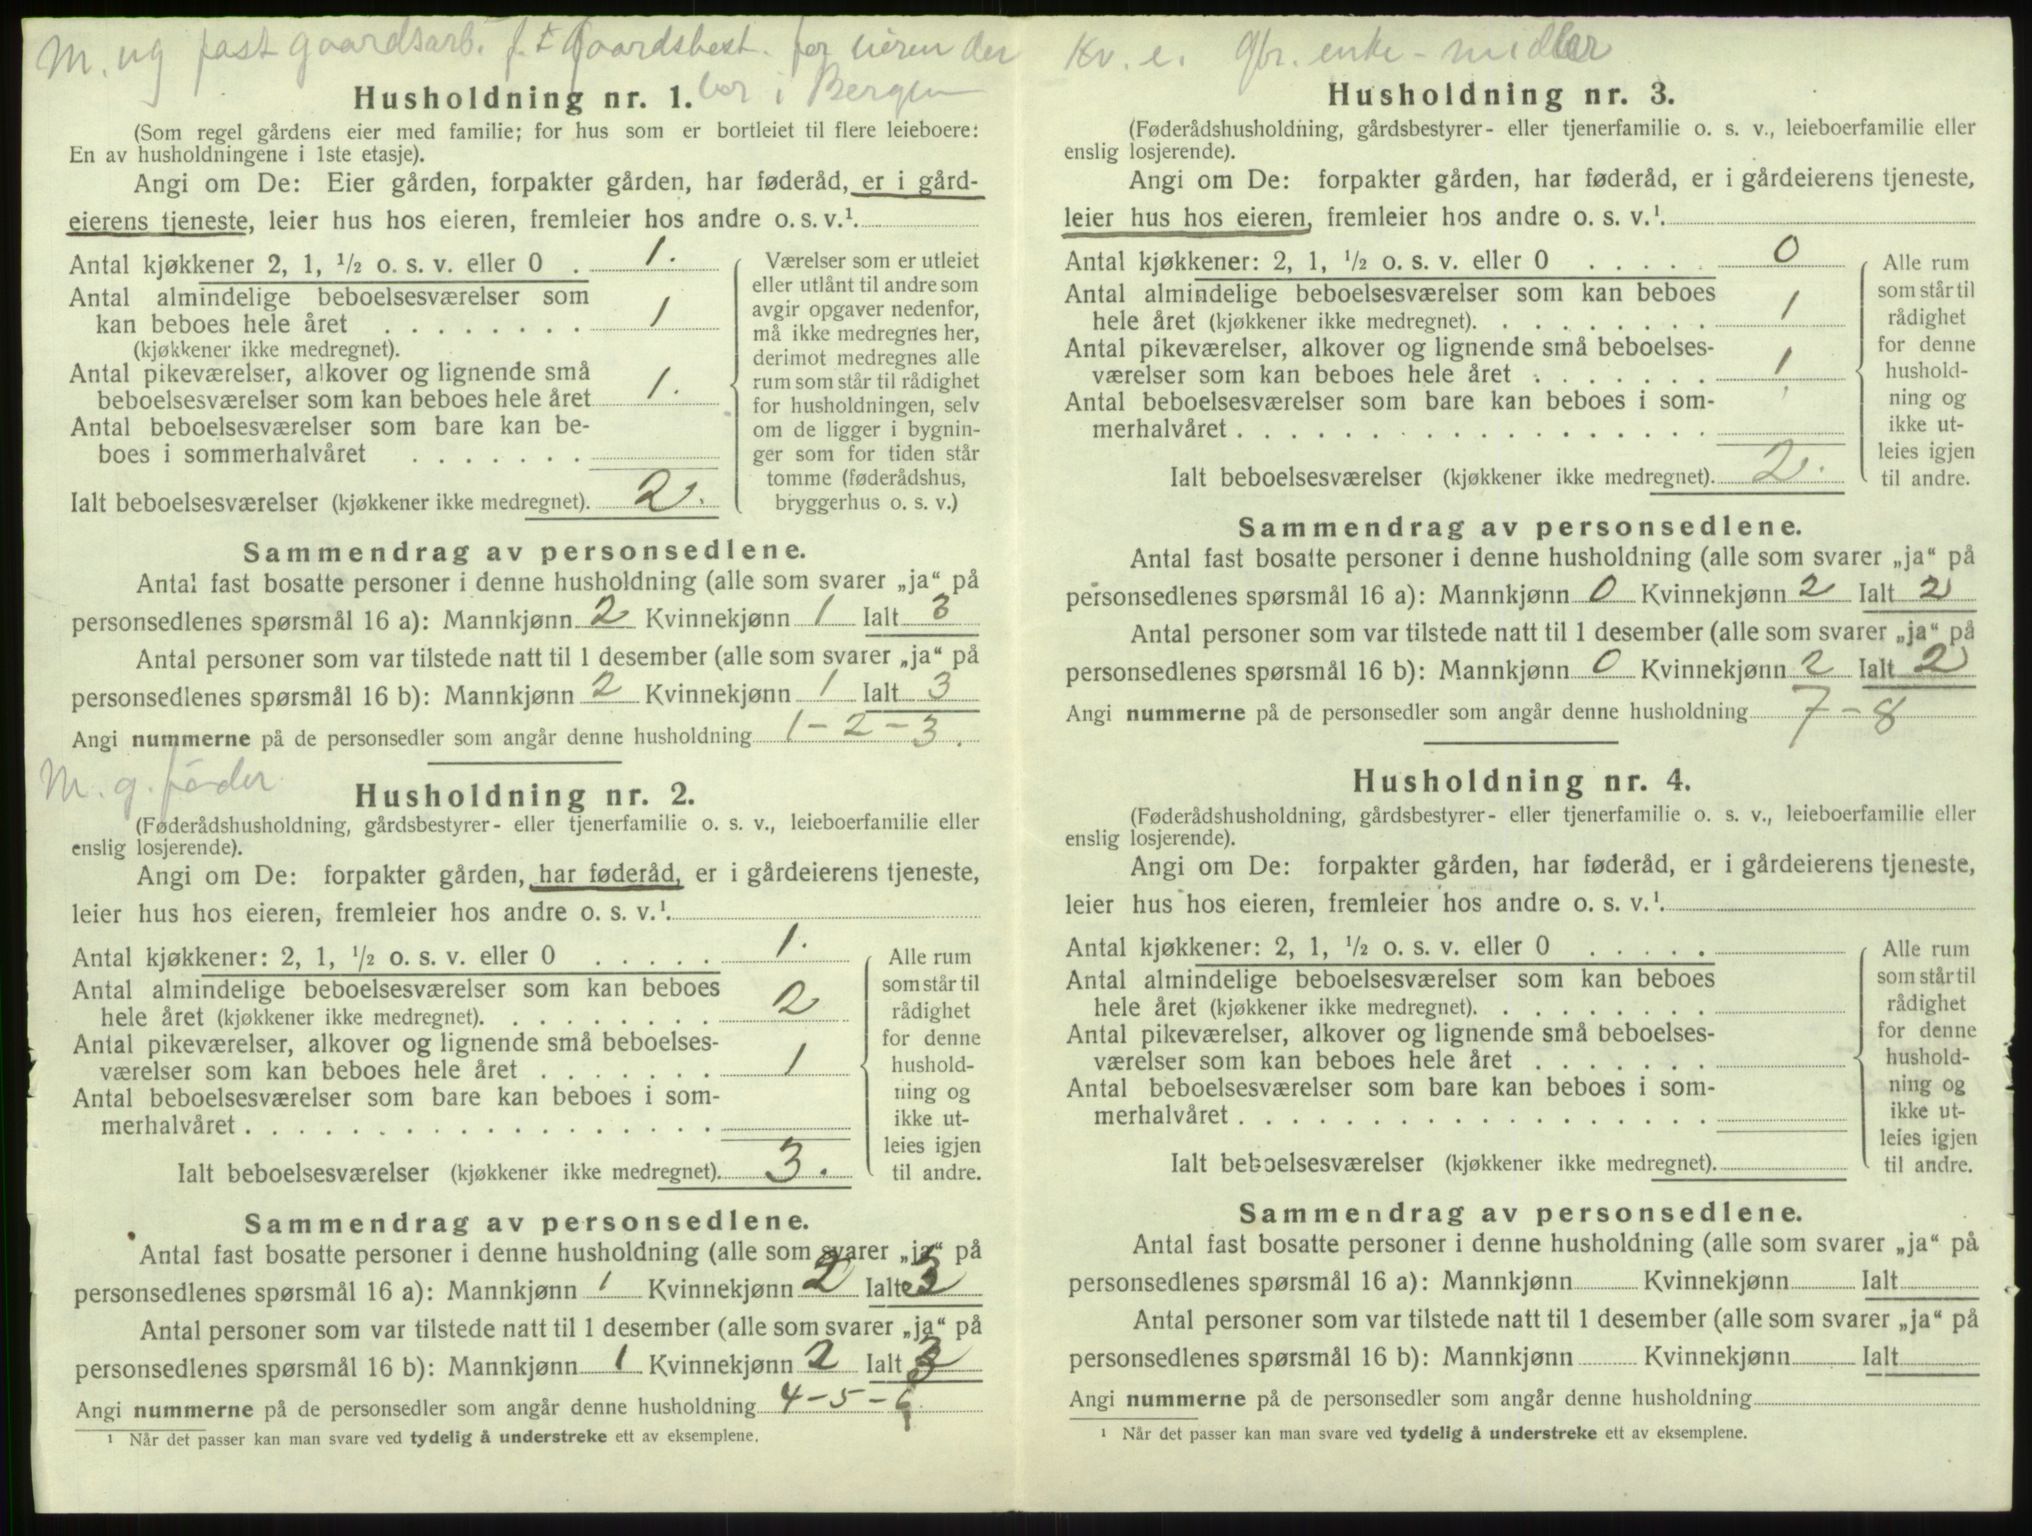 M. ug fast gaardsarb. f. t. Gaardsbest. for eieren der
bor i Bergen
Husholdning nr. 1.
(Som regel gårdens eier med familie; for hus som er bortleiet til flere leieboere:
En av husholdningene i 1ste etasje).
Angi om De: Eier gården, forpakter gården, har føderåd, er i gård-
eierens tjeneste, leier hus hos eieren, fremleier hos andre o. s. v.¹.
Antal kjøkkener 2, 1, ½ o. s. v. eller 0 . 1.
Antal almindelige beboelsesværelser som
kan beboes hele året . . . . . . . . 1
(kjøkkener ikke medregnet).
Antal pikeværelser, alkover og lignende små
beboelsesværelser som kan beboes hele året 1.
Antal beboelsesværelser som bare kan be-
boes i sommerhalvåret . . . . . . .
Ialt beboelsesværelser (kjøkkener ikke medregnet). 2.
Værelser som er utleiet
eller utlånt til andre som
avgir opgaver nedenfor,
må ikke medregnes her,
derimot medregnes alle
rum som står til rådighet
for husholdningen, selv
om de ligger i bygnin-
ger som for tiden står
tomme (føderådshus,
bryggerhus o. s. v.)
Sammendrag av personsedlene.
Antal fast bosatte personer i denne husholdning (alle som svarer „ja“ på
personsedlenes spørsmål 16 a): Mannkjønn 2 Kvinnekjønn 1 Ialt 3
Antal personer som var tilstede natt til 1 desember (alle som svarer „ja“ på
personsedlenes spørsmål 16 b): Mannkjønn 2 Kvinnekjønn 1 Ialt 3
Angi nummerne på de personsedler som angår denne husholdning 1 - 2 - 3.
M. g. føder
Husholdning nr. 2.
(Føderådshusholdning, gårdsbestyrer- eller tjenerfamilie o. s. v., leieboerfamilie eller
enslig losjerende).
Angi om De: forpakter gården, har føderåd, er i gårdeierens tjeneste,
leier hus hos eieren, fremleier hos andre o. s. v.¹.
Antal kjøkkener: 2, 1, ½ o. s. v. eller 0 . . . . . 1.
Antal almindelige beboelsesværelser som kan beboes
hele året (kjøkkener ikke medregnet). . . . . . . . . 2
Antal pikeværelser, alkover og lignende små beboelses-
værelser som kan beboes hele året . . . . . . . 1
Antal beboelsesværelser som bare kan beboes i som-
merhalvåret . . . . . . . . . . . . . . . . . .
Ialt beboelsesværelser (kjøkkener ikke medregnet). 3.
Alle rum
som står til
rådighet
for denne
hushold-
ning og
ikke ut-
leies igjen
til andre.
Sammendrag av personsedlene.
Antal fast bosatte personer i denne husholdning (alle som svarer „ja“ på
personsedlenes spørsmål 16 a): Mannkjønn 1 Kvinnekjønn 2 Ialt 3
Antal personer som var tilstede natt til 1 desember (alle som svarer „ja“ på
personsedlenes spørsmål 16 b): Mannkjønn 1 Kvinnekjønn 2 Ialt 3
Angi nummerne på de personsedler som angår denne husholdning 4 - 5 - 6
¹ Når det passer kan man svare ved tydelig å understreke ett av eksemplene.
Kv. e. Gbr. enke - midler
Husholdning nr. 3.
(Føderådshusholdning, gårdsbestyrer- eller tjenerfamilie o. s. v., leieboerfamilie eller
enslig losjerende).
Angi om De: forpakter gården, har føderåd, er i gårdeierens tjeneste,
leier hus hos eieren, fremleier hos andre o. s. v.¹.
Antal kjøkkener: 2, 1, ½ o. s. v. eller 0 . . . . . 0
Antal almindelige beboelsesværelser som kan beboes
hele året (kjøkkener ikke medregnet). . . . . . . . . 1
Antal pikeværelser, alkover og lignende små beboelses-
værelser som kan beboes hele året . . . . . . . 1
Antal beboelsesværelser som bare kan beboes i som-
merhalvåret . . . . . . . . . . . . . . . . . .
Ialt beboelsesværelser (kjøkkener ikke medregnet). 2.
Alle rum
som står til
rådighet
for denne
hushold-
ning og
ikke ut-
leies igjen
til andre.
Sammendrag av personsedlene.
Antal fast bosatte personer i denne husholdning (alle som svarer „ja“ på
personsedlenes spørsmål 16 a): Mannkjønn 0 Kvinnekjønn 2 Ialt 2
Antal personer som var tilstede natt til 1 desember (alle som svarer „ja“ på
personsedlenes spørsmål 16 b): Mannkjønn 0 Kvinnekjønn 2 Ialt 2
Angi nummerne på de personsedler som angår denne husholdning 7 - 8
Husholdning nr. 4.
(Føderådshusholdning, gårdsbestyrer- eller tjenerfamilie o. s. v., leieboerfamilie eller
enslig losjerende).
Angi om De: forpakter gården, har føderåd, er i gårdeierens tjeneste,
leier hus hos eieren, fremleier hos andre o. s. v.¹.
Antal kjøkkener: 2, 1, ½ o. s. v. eller 0 . . . . .
Antal almindelige beboelsesværelser som kan beboes
hele året (kjøkkener ikke medregnet). . . . . . . . .
Antal pikeværelser, alkover og lignende små beboelses-
værelser som kan beboes hele året . . . . . . .
Antal beboelsesværelser som bare kan beboes i som-
merhalvåret . . . . . . . . . . . . . . . . . .
Ialt beboelsesværelser (kjøkkener ikke medregnet).
Alle rum
som står til
rådighet
for denne
hushold-
ning og
ikke ut-
leies igjen
til andre.
Sammendrag av personsedlene.
Antal fast bosatte personer i denne husholdning (alle som svarer „ja“ på
personsedlenes spørsmål 16 a): Mannkjønn Kvinnekjønn Ialt
Antal personer som var tilstede natt til 1 desember (alle som svarer „ja“ på
personsedlenes spørsmål 16 b): Mannkjønn Kvinnekjønn Ialt
Angi nummerne på de personsedler som angår denne husholdning
¹ Når det passer kan man svare ved tydelig å understreke ett av eksemplene.